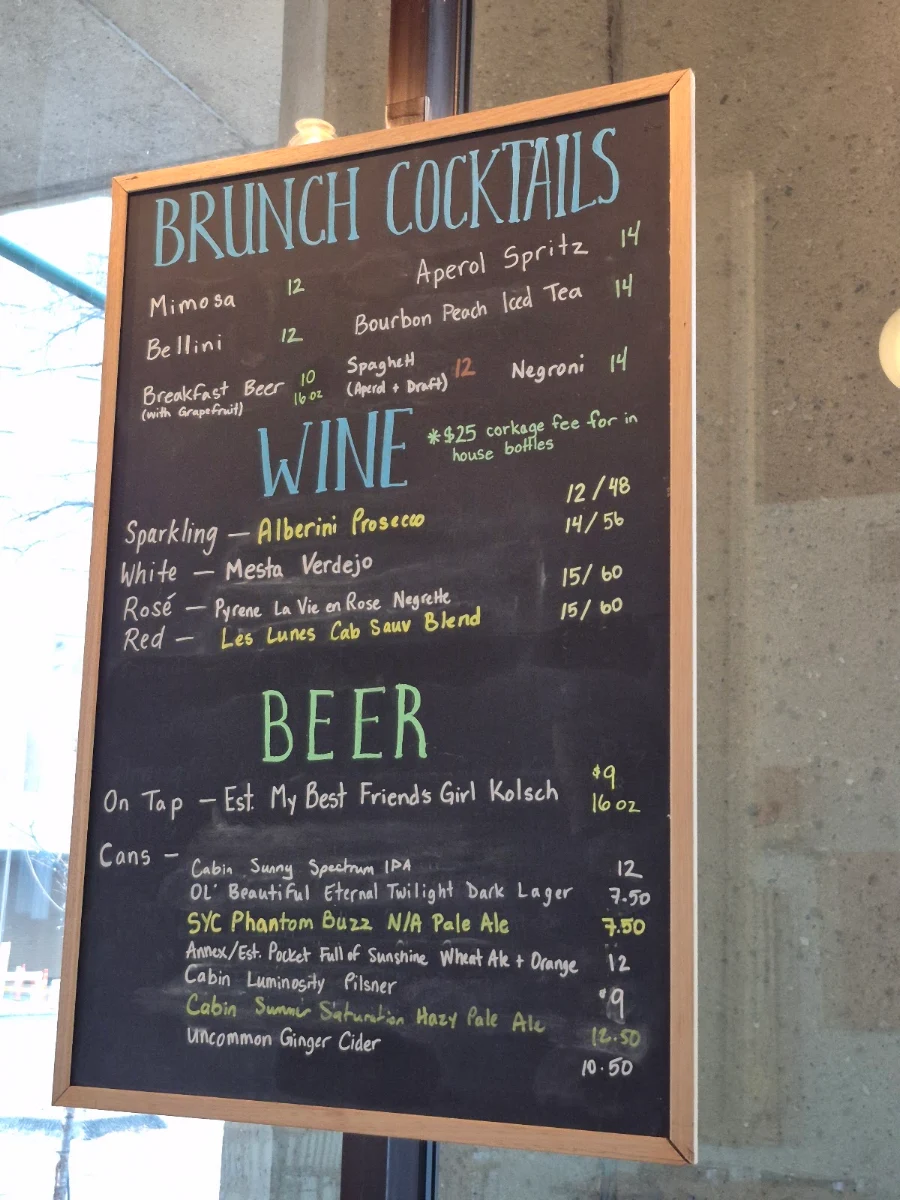 BRUNCH COCKTAILS
Mimosa 12
Aperol Spritz 14
Bellini 12
Bourbon Peach Iced Tea 14
Breakfast Beer 10
(with Grapefruit) 16 oz
Spaghett 12
(Aperol + Draft)
Negroni 14
WINE
*$25 corkage fee for in
house bottles
Sparkling — Alberini Prosecco 12/48
White — Mesta Verdejo 14/56
Rosé — Pyrene La Vie en Rose Negrette 15/60
Red — Les Lunes Cab Sauv Blend 15/60
BEER
On Tap — Est. My Best Friends Girl Kolsch $9
16 oz
Cans —
Cabin Sunny Spectrum IPA 12
OL' Beautiful Eternal Twilight Dark Lager 7.50
SYC Phantom Buzz N/A Pale Ale 7.50
Annex/Est. Pocket Full of Sunshine Wheat Ale + Orange 12
Cabin Luminosity Pilsner $9
Cabin Summer Saturation Hazy Pale Ale 12.50
Uncommon Ginger Cider 10.50